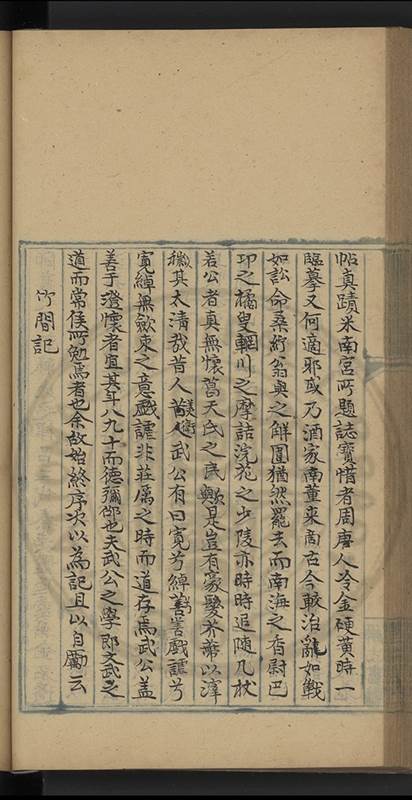 帖真蹟米南宮所題誌寶惜者周唐人冷金硬黃時一
臨摹又何適邪或乃酒家南董来商古今較治亂如戰
如訟命桑紵翁與之觧圍猶然罷去而南海之香尉巴
卭之橘叟輞川之摩詰浣花之少陵亦時時追随几杖
若公者真無懷葛天氏之民歟是豈有豪髮芥蔕以滓
穢其太清哉昔人美衛武公有曰寛兮綽兮善戲謔兮
寛綽無歛束之意戲謔非莊厲之時而道存焉武公蓋
善于澄懷者宜其年八九十而徳彌卲也夫武公之學即文武之
道而常侯所勉焉者也余故始終序次以為記且以自勵云
竹間記